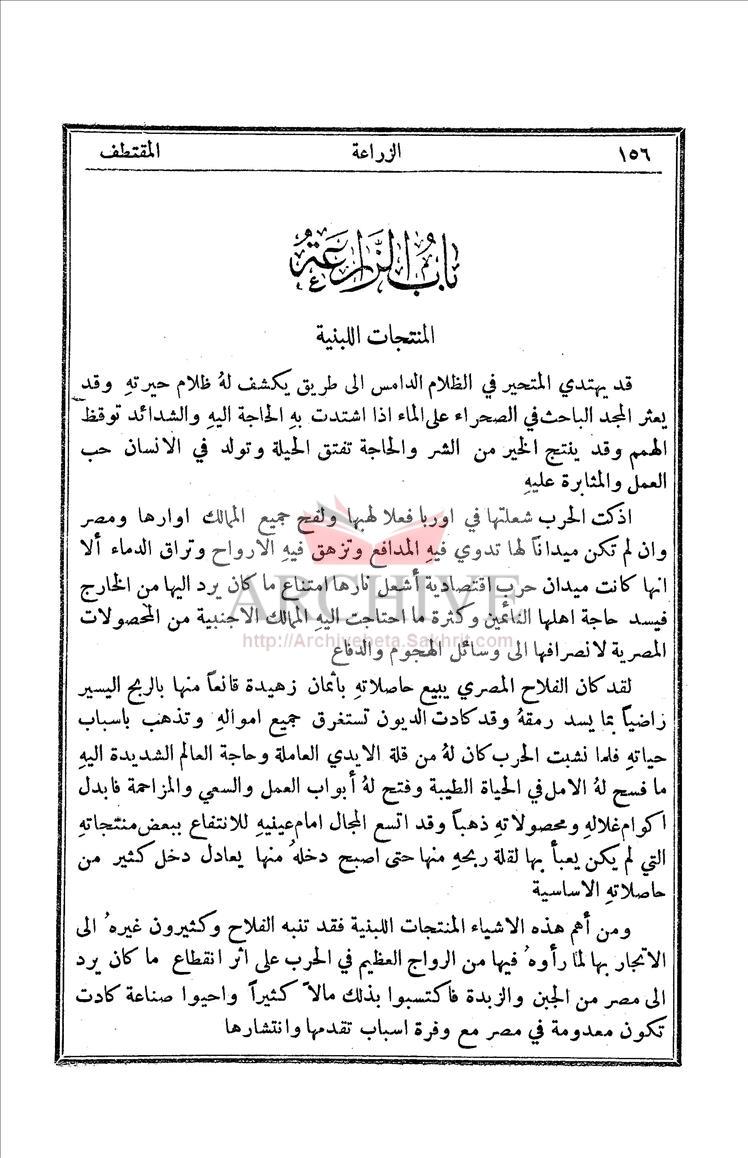 ١٥٦ الزراعة المقتطف
باب الزراعة
المنتجات اللبنية
قد يهتدي المتحير في الظلام الدامس الى طريق يكشف لهُ ظلام حيرتهِ وقد
يعثر المجد الباحث في الصحراء على الماء اذا اشتدت بهِ الحاجة اليهِ والشدائد توقظ
الهمم وقد ينتج الخير من الشر والحاجة تفتق الحيلة وتولد في الانسان حب
العمل والمثابرة عليهِ
اذكت الحرب شعلتها في اوربا فعلا لهبها ولفح جميع الممالك اوارها ومصر
وان لم تكن ميداناً لها تدوي فيهِ المدافع وتزهق فيهِ الارواح وتراق الدماء ألا
انها كانت ميدان حرب اقتصادية أشعل نارها امتناع ما كان يرد اليها من الخارج
فيسد حاجة اهلها النائمين وكثرة ما احتاجت اليهِ الممالك الاجنبية من المحصولات
المصرية لانصرافها الى وسائل الهجوم والدفاع
لقد كان الفلاح المصري يبيع حاصلاتهِ بأثمان زهيدة قانعاً منها بالربح اليسير
راضياً بما يسد رمقهُ وقد كادت الديون تستغرق جميع اموالهِ وتذهب باسباب
حياتهِ فلما نشبت الحرب كان لهُ من قلة الايدي العاملة وحاجة العالم الشديدة اليهِ
ما فسح لهُ الامل في الحياة الطيبة وفتح لهُ أبواب العمل والسعي والمزاحمة فابدل
اكوام غلالهِ ومحصولاتهِ ذهباً وقد اتسع المجال امام عينيهِ للانتفاع ببعض منتجاتهِ
التي لم يكن يعبأ بها لقلة ربحهِ منها حتى اصبح دخلهُ منها يعادل دخل كثير من
حاصلاتهِ الاساسية
ومن أهم هذه الاشياء المنتجات اللبنية فقد تنبه الفلاح وكثيرون غيرهُ الى
الاتجار بها لما رأوهُ فيها من الرواج العظيم في الحرب على اثر انقطاع ما كان يرد
الى مصر من الجبن والزبدة فاكتسبوا بذلك مالاً كثيراً واحيوا صناعة كادت
تكون معدومة في مصر مع وفرة اسباب تقدمها وانتشارها
ARCHIVE
http://Archivebeta.Sakhrit.com